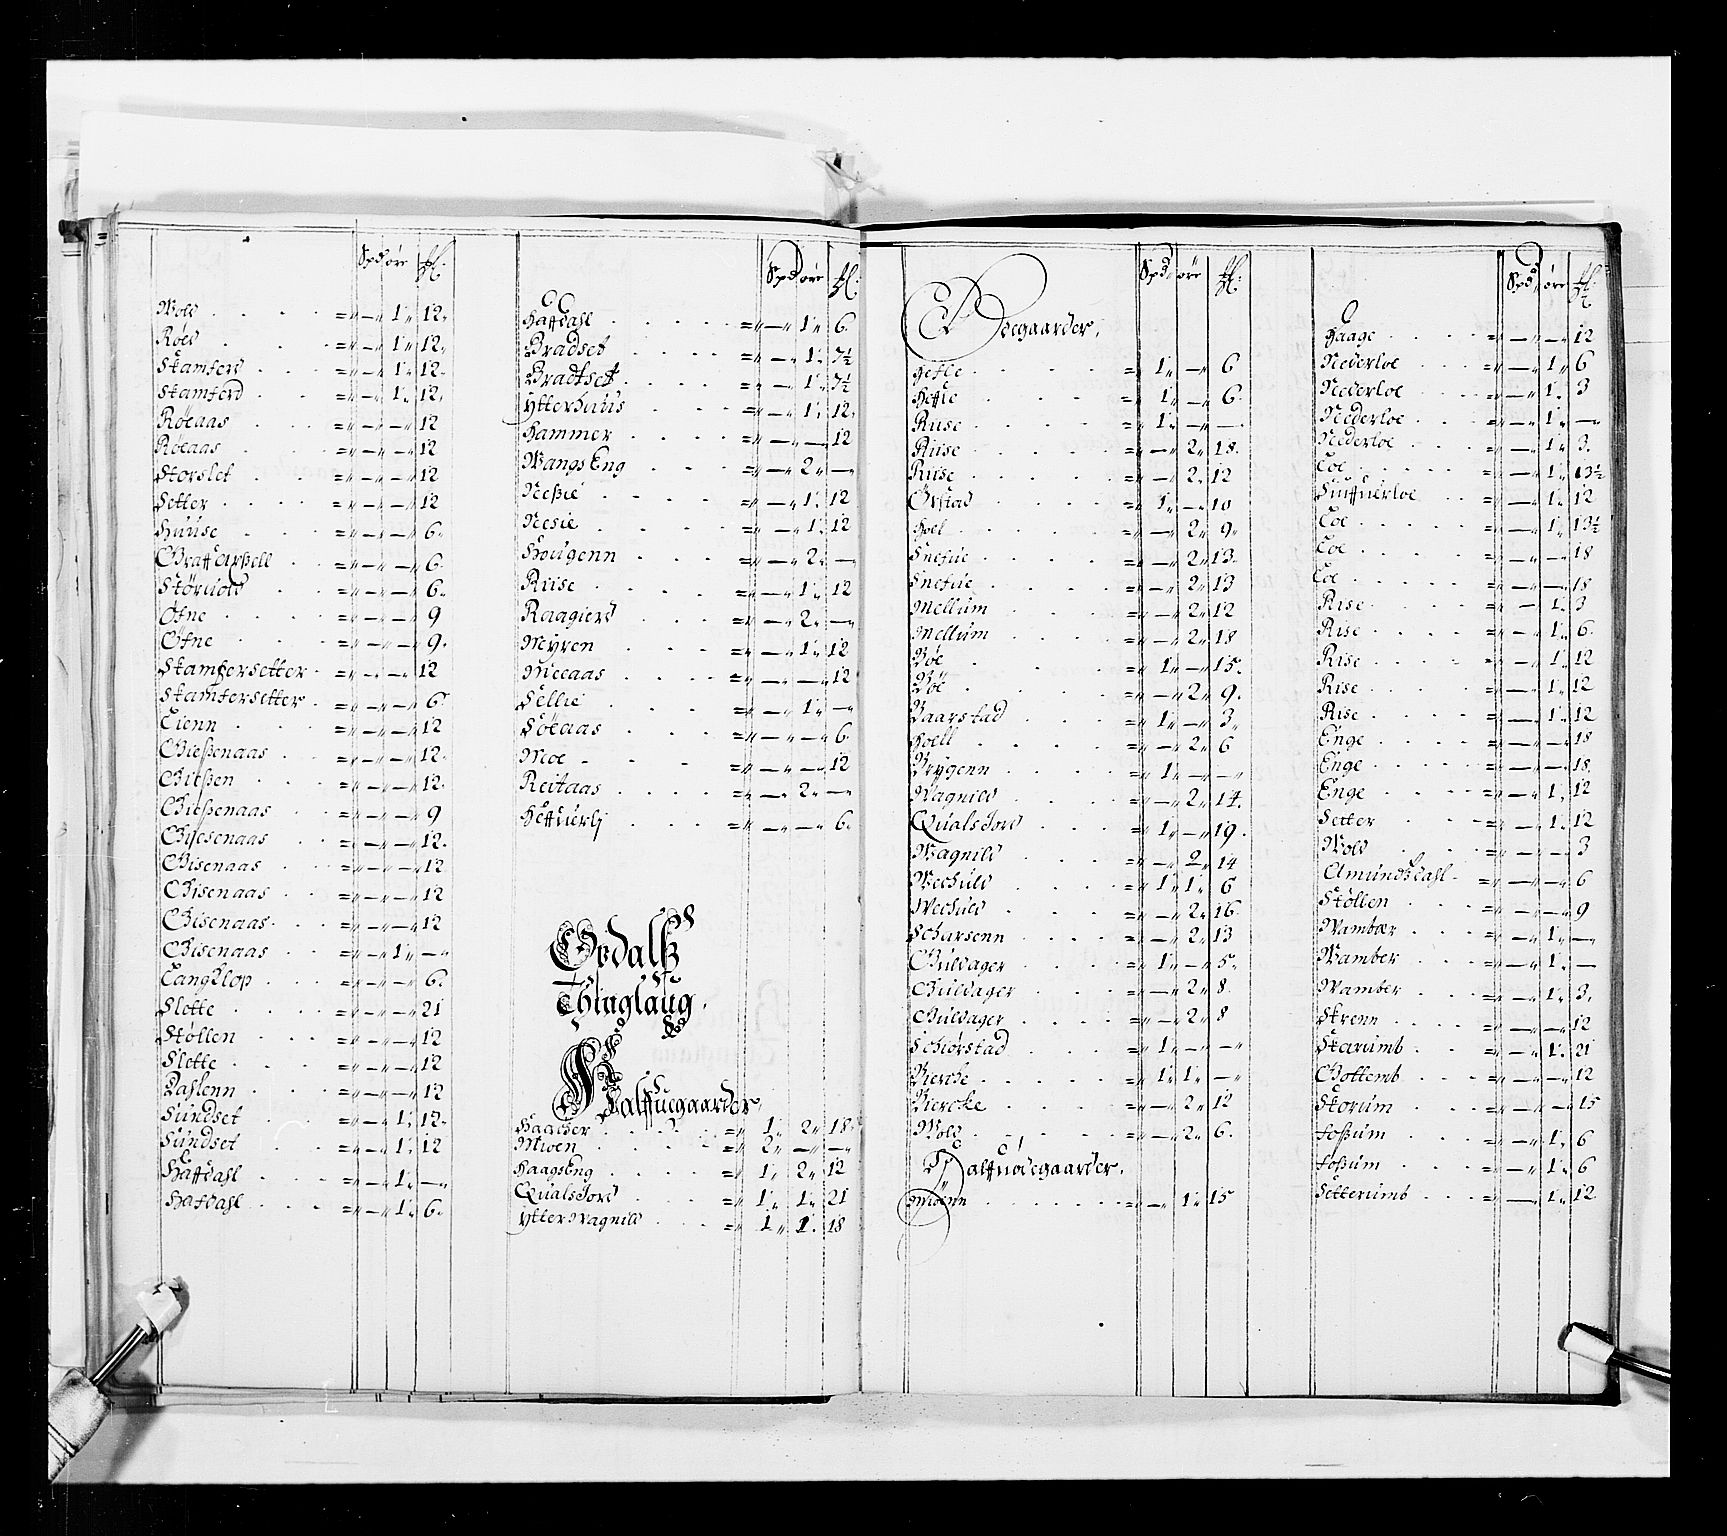 Spd öre
Wold . . . . =„—„ 1„ 12„
Röed . . . =„—„ 1„ 12„
Skamferd . . . =„—„ 1„ 12.
Skamferd . . =„—„ 1„ 12„
Röeaas . . . =„—„—„ 12
Röeaas . . . =„—„—„ 12
Storslet . . . =„—„—„ 12
Setter . . . =„—„—„ 12
Huuse . . . =„—„—„ 6„
=„—„—„ 6
Störuold . . . =„—„—„ 6„
Öfne . . . =„—„—„ 9
Öfne . . . =„—„—„ 9.
Skamfersetter . =„—„—„ 12
Skamfersetter . =„—„—„ 6
Lienn . . . =„—„—„ 12
Gießenaas . . =„—„—„ 12.
Gießen . . . =„—„—„ 12.
Gießenaas . . =„—„—„ 9
Gisesenaas . . =„—„—„ 12.
Gisenaas . . =„—„—„ 12
Gisenaas . . =„—„—„ 12
Gisenaas . . =„—„—„ 12
Gisenaas . . =„—„ 1„—„
Langklop . . =„—„—„ 6.
Slette . . . =„—„—„ 21
Stöllen . . . =„—„—„ 12
Slette . . . =„—„—„ 12
Dahlenn . . . =„—„—„ 12
Sundset . . . =„—„ 1„ 12„
Sundset . . . =„—„ 1„ 12
Haffdahl . . . =„—„ 1„—„
Hafdahl . . . =„—„ 1„ 6.
Spd öre
Haffdahl . . . =„—„ 1„ 6.
Bradset . . . =„—„ 1„ 7½
Bradtset . . . =„—„ 1„ 7½
Ytterhuus . . . =„—„ 1„ 12.
Hammer . . . =„—„—„ 12
Wangs Eng . . . =„—„ 2„ —
Neßie . . . =„—„ 1„ 12
Nesie . . . =„—„ 1„ 12
Hougenn . . . =„—„ 2„ —
Riise . . . =„—„ 1„ 12
Raagierd . . . =„—„ 2„—„
Myren . . . =„—„ 1„ 12
Nieeaas . . . =„—„—„ 12
Sellie . . . =„—„ 1„ —
Söeaas . . . =„—„—„ 6.
Moe . . . =„—„—„ 12
Reitaas . . . =„—„ 2„—„
=„—„—„ 6.
Opdalß
Thinglaug.
Halffuegaarder,
Haacker . . . =„ 1„ 2„ 18„
Mioen . . . =„ 2„—„—„
HaagsEng . . . =„ 1„ 2„ 12
Qualsiord . . . =„ 1„ 1„ 21
Ytter Wagnild . . . =„ 1„ 1„ 18
Spd öre
Ödegaarder,
=„ 1„—„ 6
=„ 1„—„ 6.
Ruse . . . =„ 1„—„—
Riise . . . =„—„ 2„ 18.
Riise . . . =„—„ 2„ 12
Örstad . . . =„ 1„—„ 10
Hoel . . . =„—„ 2„ 9„
Snefue . . . =„—„ 2„ 13.
Snefue . . . =„—„ 2„ 13
Mellum . . . =„—„ 2„ 12
Mellum . . . =„—„ 2„ 18
Böe . . . =„ 1„—„ 15.
Böe . . . =„—„ 2„ 9.
Baarstad . . . =„ 1„—„ 3„
Hoell . . . =„—„ 2„ 6
Bryggenn . . . =„ 1„—„—„
Wagnild . . . =„—„ 2„ 14.
Qualsiord . . . =„ 1„—„ 19.
Wagnild . . . =„—„ 2„ 14
Wechuld . . . =„ 1„ 1„ 6
Wechuld . . . =„—„ 2„ 16.
Scharsenn . . . =„—„ 2„ 13
Guldager . . . =„ 1„—„ 5„
Guldager . . . =„—„ 2„ 8.
Guldager . . . =„—„ 2„ 8
Schiörstad . . . =„ 1„—„—„
Biercke . . . =„ 1„ 1„—„
Biercke . . . =„—„ 2„ 12
Wold . . . =„—„ 2„ 6.
Halffuödegaarder.
Miöenn . . . =„—„ 1„ 15
Spd öre
Haage . . . =„—„—„ 12
Nederloe . . . =„—„ 1„ 6
Nederloe . . . =„—„ 1„ 3
Nederloe . . . =„—„ 1„—„
Nederloe . . . =„—„ 1„ 3.
Loe . . . =„—„ 1„ 13½
=„—„ 1„ 12
Loe . . . =„—„ 1„ 13½
Loe . . . =„—„—„ 18
Loe . . . =„—„—„ 18
Rise . . . =„—„ 1„ 3
Rise . . . =„—„ 1„ 6.
Rise . . . =„—„ 1„ 12
Rise . . . =„—„ 1„ 12
Rise . . . =„—„ 1„ 12
Enge . . . =„—„—„ 18
Enge . . . =„—„—„ 18.
Enge . . . =„—„ 1„ 12
Setter . . . =„—„ 1„ 12
Wold . . . =„—„—„ 3
Amundsdahl . =„—„—„ 6
Stöllen . . . =„—„—„ 9
Wambær . . . =„—„ 1„—„
Wamber . . . =„—„ 1„ —
Wamber . . . =„—„ 1„ 3.
Strenn . . . =„—„—„ 12
Starumb . . . =„—„ 1„ 21
Gottemb . . . =„—„—„ 12
Storum . . . =„—„—„ 15
Foßum . . . =„—„ 1„ 6
Foßum . . . =„—„ 1„ 6
Setterumb . . . =„—„ 1„ 12